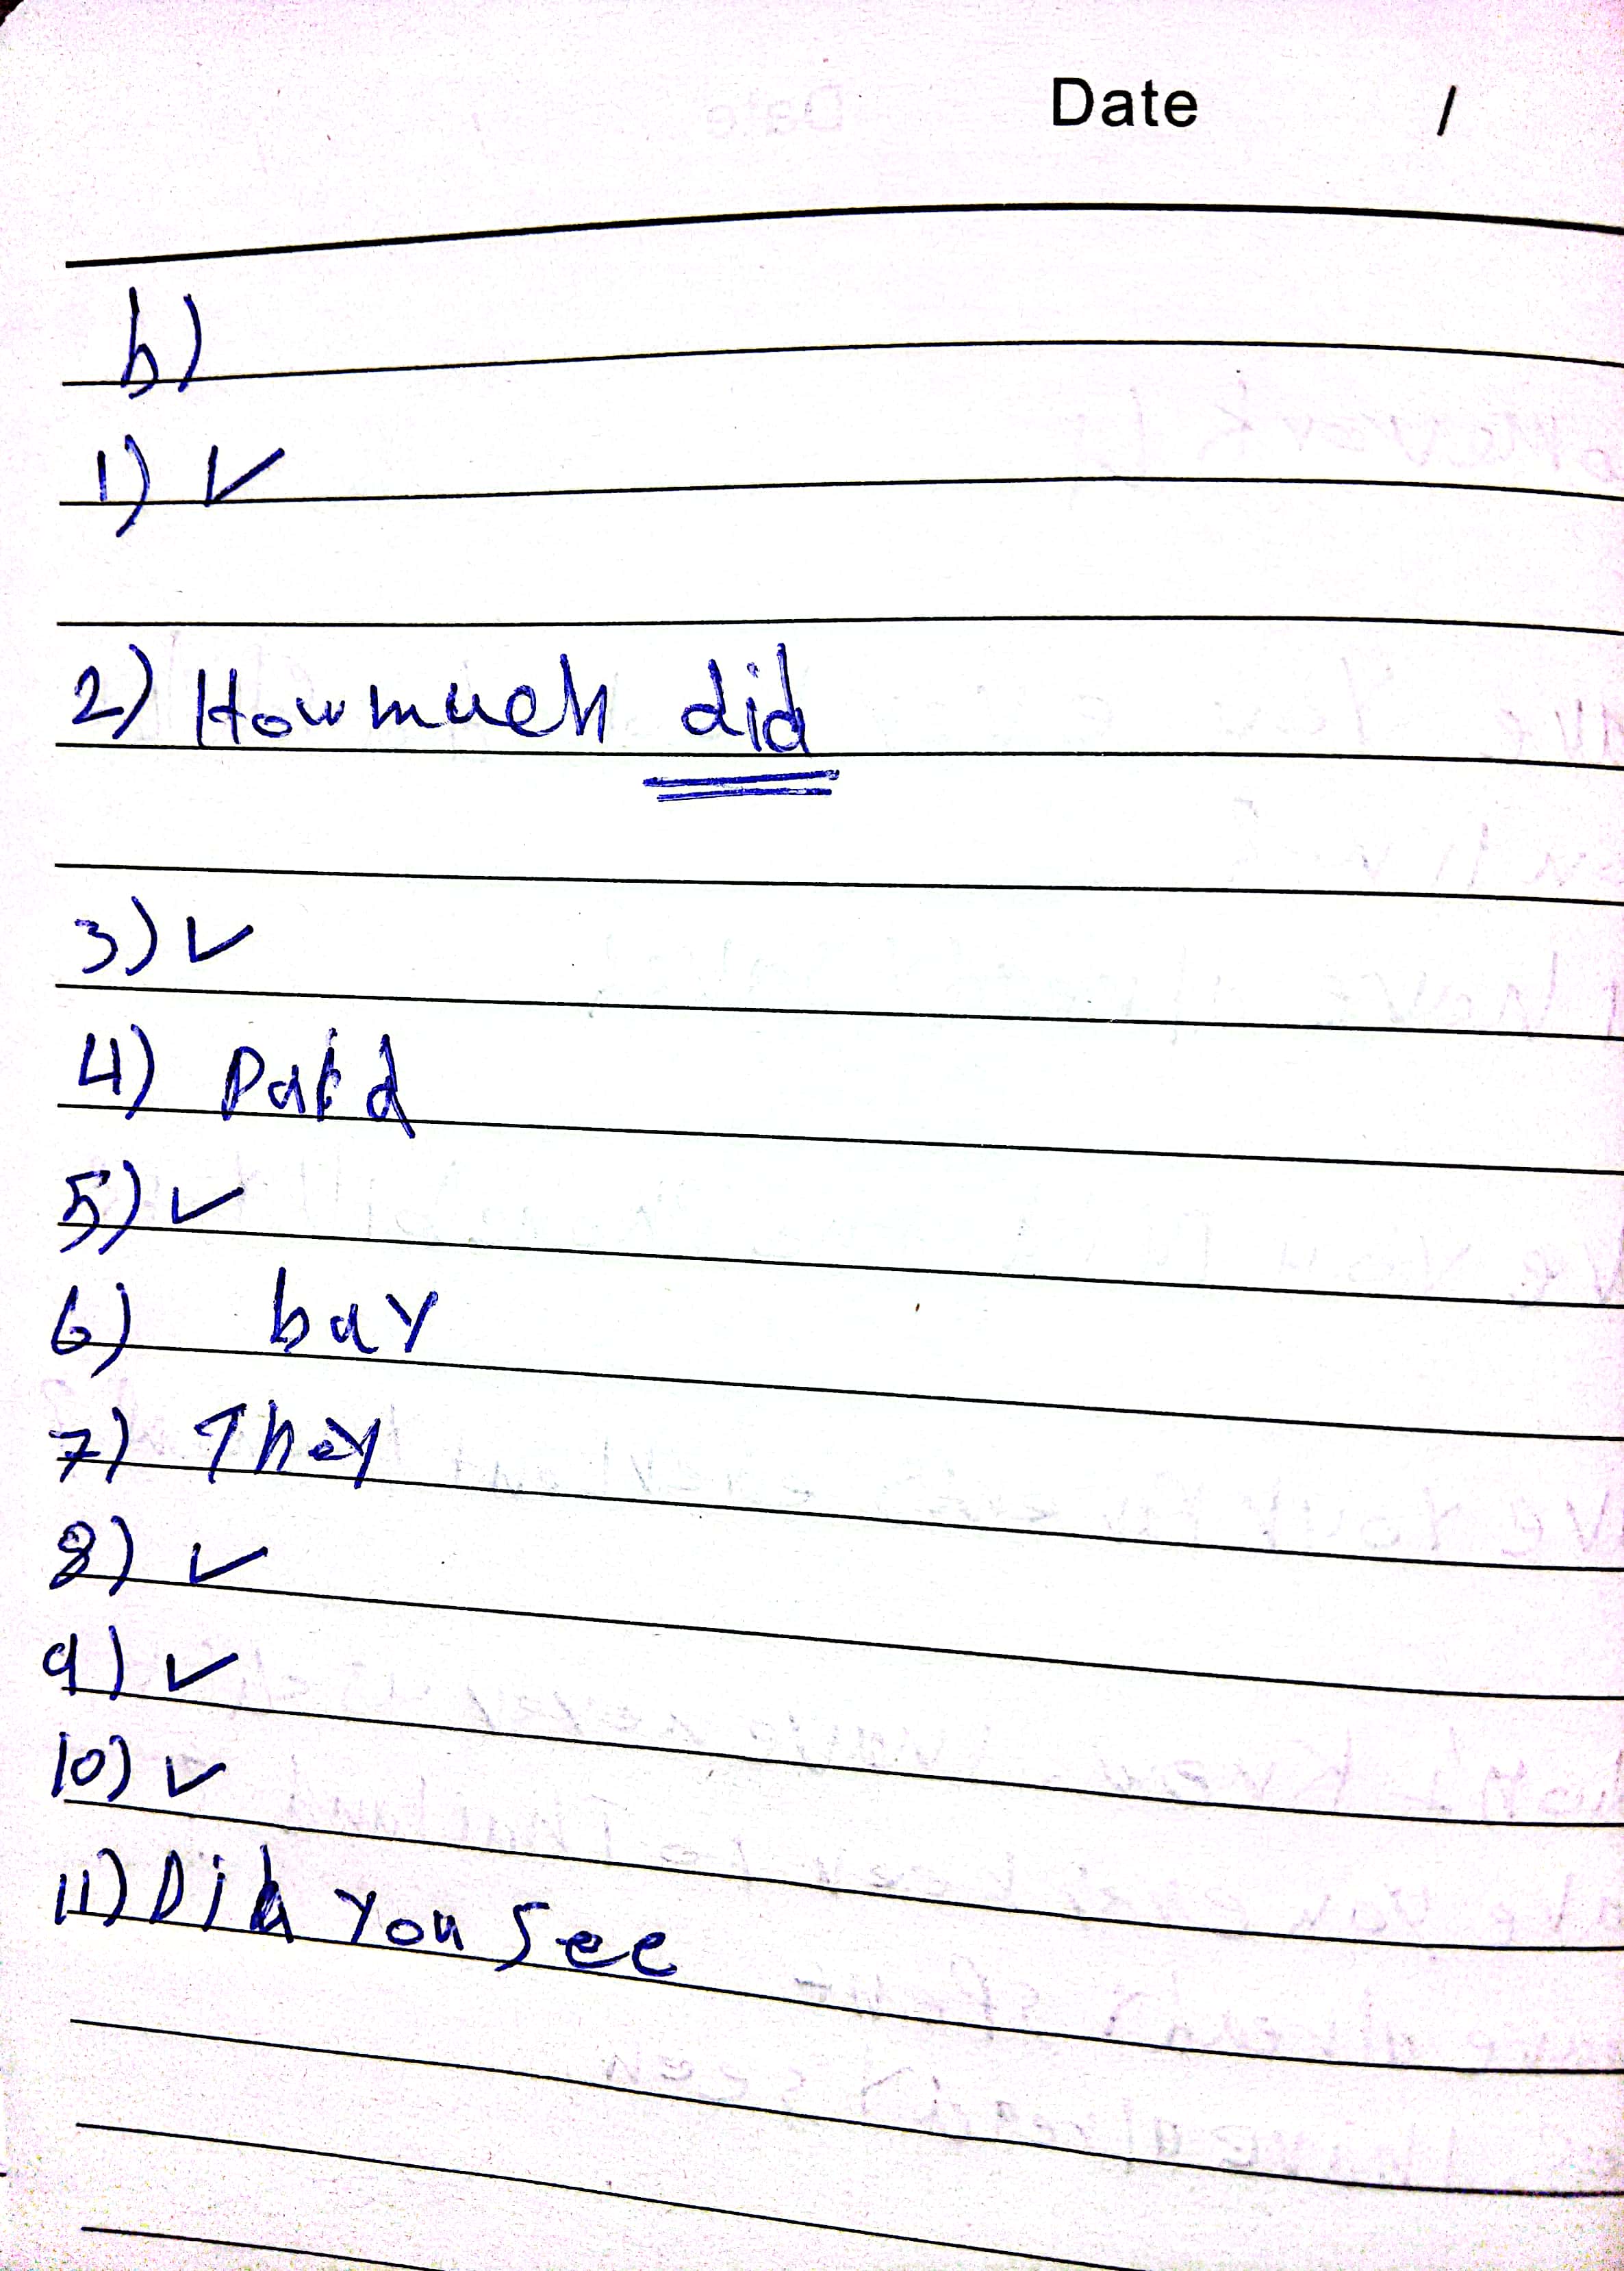 Date /
b)
1) ✓
2) How much did
3) ✓
4) Paid
5) ✓
6) buy
7) They
8) ✓
9) ✓
10) ✓
11) Did you see